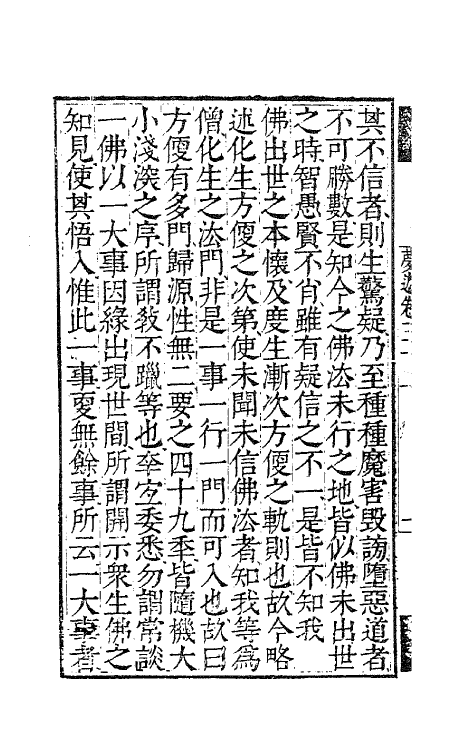 其不信者則生驚疑乃至種種魔害毀謗墮惡道者
不可勝數是知今之佛法未行之地皆似佛未出世
之時智愚賢不肖雖有疑信之不一是皆不知我
佛出世之本懷及度生漸次方便之軌則也故今略
述化生方便之次第使未聞未信佛法者知我等為
僧化生之法門非是一事一行一門而可入也故曰
方便有多門歸源性無二要之四十九年皆隨機大
小淺深之序所謂教不躐等也幸宜委悉勿謂常談
一佛以一大事因緣出現世間所謂開示眾生佛之
知見使其悟入惟此一事更無餘事所云一大事者